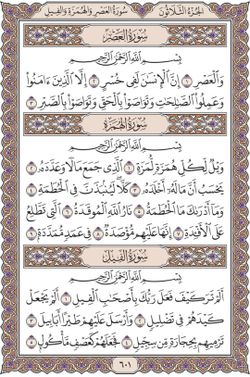 سُورَةُ العَصْرِ وَالهُمَزَةِ وَالفِيلِ
الجُزْءُ الثَّلَاثُونَ
سُورَةُ العَصْرِ
بِسْمِ اللَّهِ الرَّحْمَٰنِ الرَّحِيمِ
وَالْعَصْرِ ١ إِنَّ الْإِنسَانَ لَفِي خُسْرٍ ٢ إِلَّا الَّذِينَ ءَامَنُوا
وَعَمِلُوا الصَّالِحَاتِ وَتَوَاصَوْا بِالْحَقِّ وَتَوَاصَوْا بِالصَّبْرِ ٣
سُورَةُ الهُمَزَةِ
بِسْمِ اللَّهِ الرَّحْمَٰنِ الرَّحِيمِ
وَيْلٌ لِّكُلِّ هُمَزَةٍ لُّمَزَةٍ ١ الَّذِي جَمَعَ مَالًا وَعَدَّدَهُ ٢
يَحْسَبُ أَنَّ مَالَهُ أَخْلَدَهُ ٣ كَلَّا لَيُنبَذَنَّ فِي الْحُطَمَةِ ٤
وَمَا أَدْرَاكَ مَا الْحُطَمَةُ ٥ نَارُ اللَّهِ الْمُوقَدَةُ ٦ الَّتِي تَطَّلِعُ
عَلَى الْأَفْئِدَةِ ٧ إِنَّهَا عَلَيْهِم مُّؤْصَدَةٌ ٨ فِي عَمَدٍ مُّمَدَّدَةٍ ٩
سُورَةُ الفِيلِ
بِسْمِ اللَّهِ الرَّحْمَٰنِ الرَّحِيمِ
أَلَمْ تَرَ كَيْفَ فَعَلَ رَبُّكَ بِأَصْحَابِ الْفِيلِ ١ أَلَمْ يَجْعَلْ
كَيْدَهُمْ فِي تَضْلِيلٍ ٢ وَأَرْسَلَ عَلَيْهِمْ طَيْرًا أَبَابِيلَ ٣
تَرْمِيهِم بِحِجَارَةٍ مِّن سِجِّيلٍ ٤ فَجَعَلَهُمْ كَعَصْفٍ مَّأْكُولٍ ٥
٦٠١